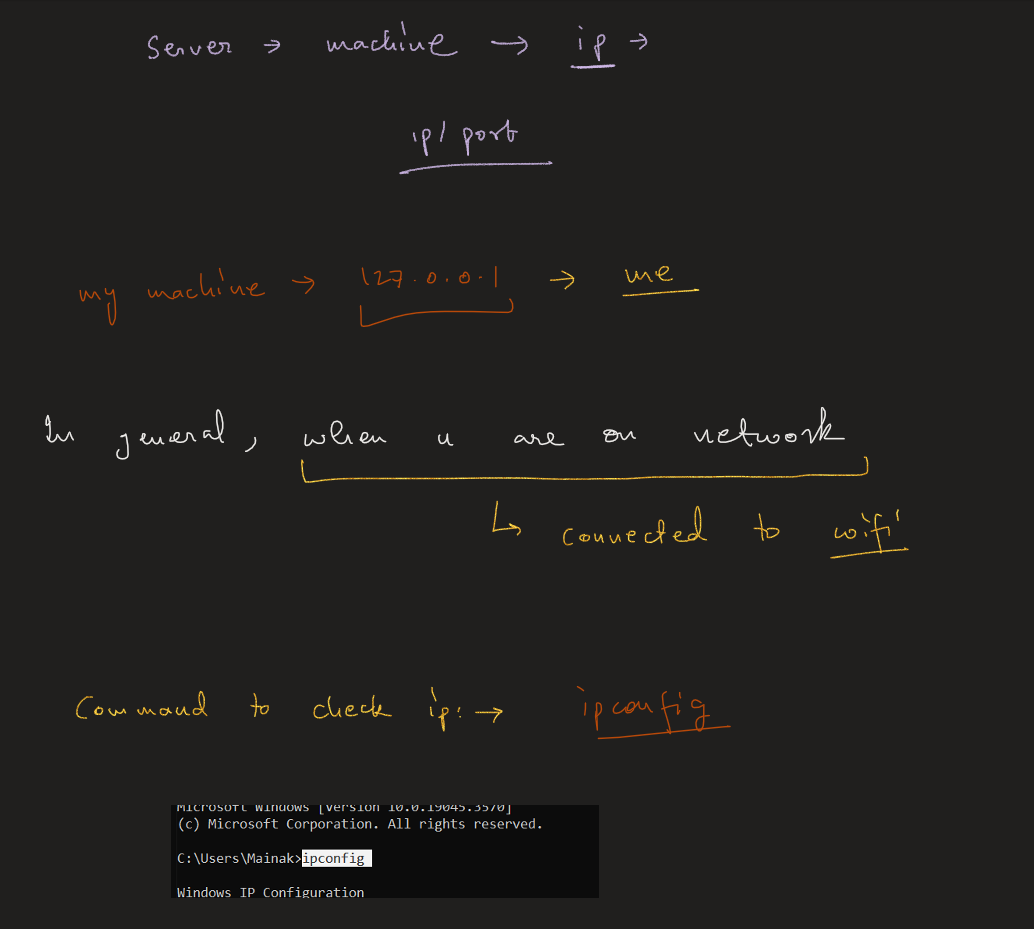 Server → machine → ip →
ip/port
my machine → 127.0.0.1 → me
In general, when u are on network
↳ connected to wifi
Command to check ip: → ipconfig
Microsoft Windows [Version 10.0.19045.3570]
(c) Microsoft Corporation. All rights reserved.
C:\Users\Mainak>ipconfig
Windows IP Configuration